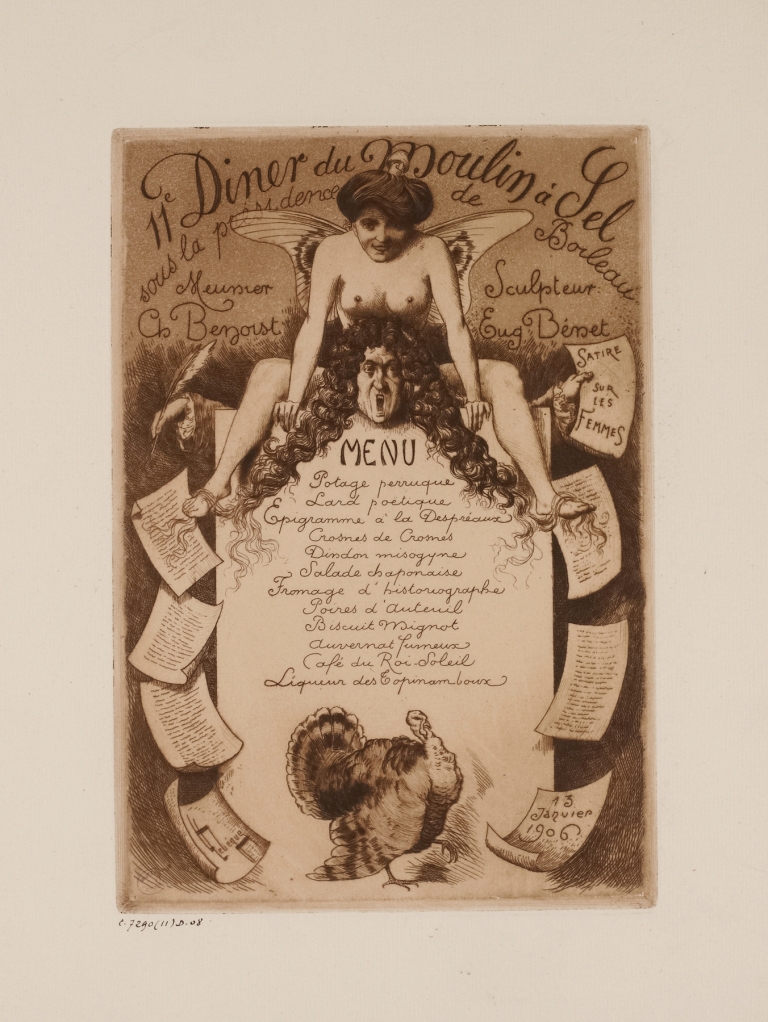 11e Diner du Moulin à Sel
sous la présidence de Boileau
Meunier
Ch Benoist
Sculpteur:
Eug Bénet
SATIRE
SUR
LES
FEMMES
MENU
Potage perruque
Lard poëtique
Epigramme à la Despréaux
Crosnes de Crosnes
Dindon misogyne
Salade chaponaise
Fromage d'historiographe
Poires d'Auteuil
Biscuit Mignot
Auvernat fumeux
Café du Roi-Soleil
Liqueur des Topinamboux
13
Janvier
1906
C-7290(11)D-08